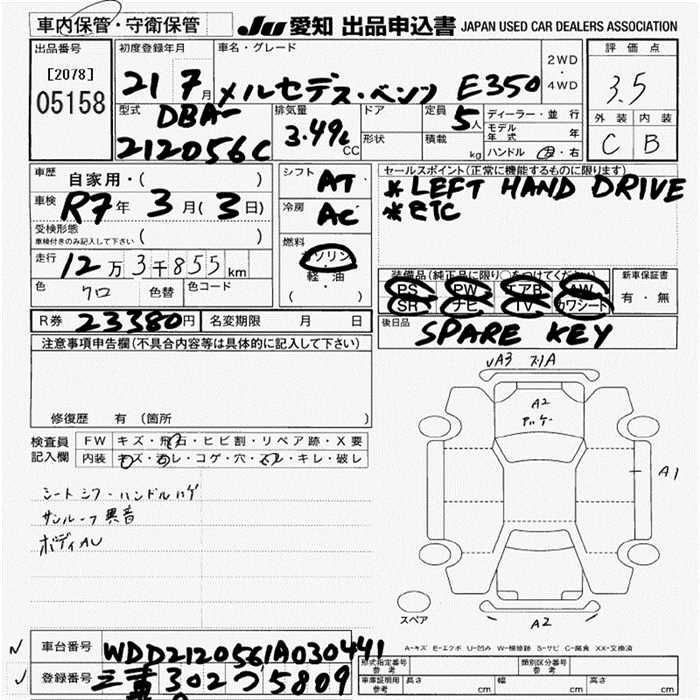 車内保管・守衛保管
JU 愛知 出品申込書 JAPAN USED CAR DEALERS ASSOCIATION
出品番号
[2078]
05158
初度登録年月
21 7月
車名・グレード
メルセデス・ベンツ E350
2WD
・
4WD
評価点
3.5
外装 内装
C B
型式
DBA-
212056C
排気量
3.49L
CC
ドア
形状
定員
5人
積載
kg
ディーラー・並行
モデル年式 年
ハンドル 左・右
車歴 自家用・( )
車検 R7年 3月(3日)
受検形態
車検付きのみ記入して下さい ( )
走行 12万3千855km
色 クロ 色替 色コード
シフト AT
冷房 AC
燃料
ガソリン
・
軽・油
( )
セールスポイント(正常に機能するものに限ります)
*LEFT HAND DRIVE
*ETC
装備品(純正品に限り○をつけてください)
PS PW エアB AW
SR ナビ TV カワシート
新車保証書
有・無
後日品
SPARE KEY
R券 23380円 名変期限 月 日
注意事項申告欄(不具合内容等は具体的に記入して下さい)
修復歴 有 (箇所
検査員
記入欄
FW キズ・飛石・ヒビ割・リペア跡・X要
内装 キズ・汚レ・コゲ・穴・スレ・キレ・破レ
シートシワ・ハンドルハゲ
サンルーフ異音
ボディAU
A3
A2
A1
A2
スペア
A-キズ E-エクボ U-凹み W-補修跡 S-サビ C-腐食 XX-交換済
車台番号 WDD2120561A030441
登録番号 三重302つ5809
形式指定番号
参考
類別区分番号
参考
車庫証明用
参考
長さ cm 幅 cm 高さ cm